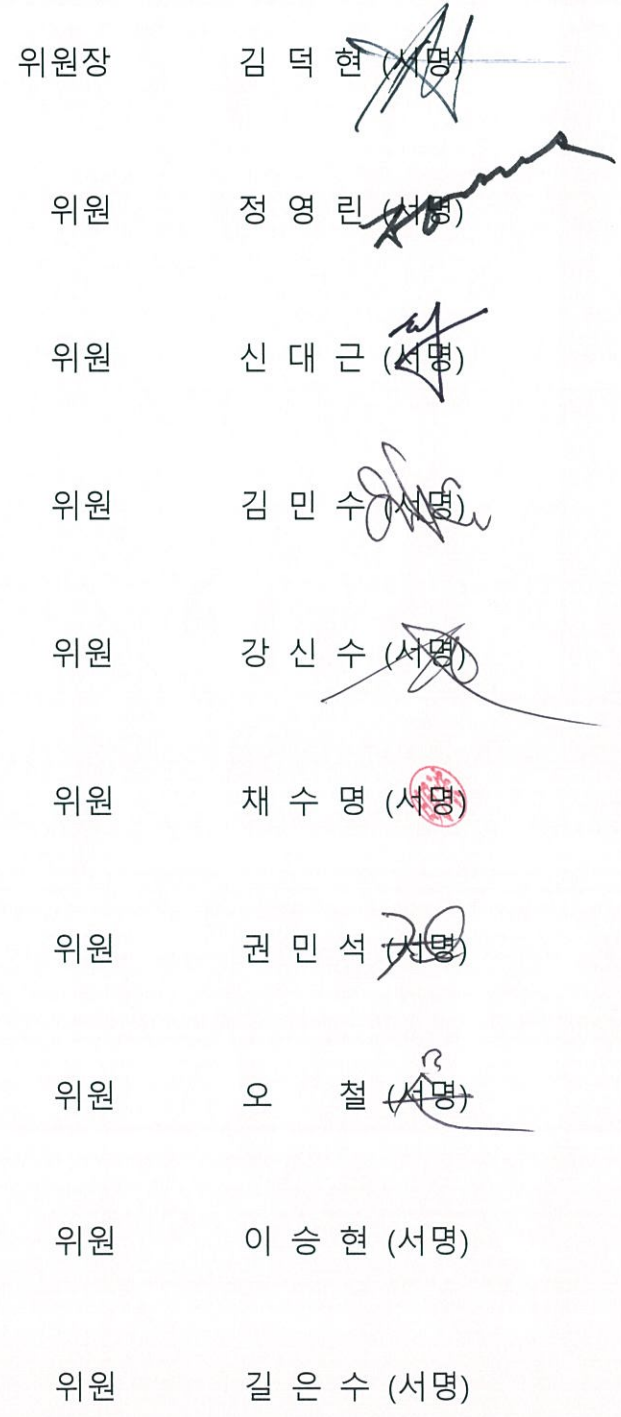 위원장 김 덕 현 (서명)
위원 정 영 린 (서명)
위원 신 대 근 (서명)
위원 김 민 수 (서명)
위원 강 신 수 (서명)
위원 채 수 명 (서명)
위원 권 민 석 (서명)
위원 오 철 (서명)
위원 이 승 현 (서명)
위원 길 은 수 (서명)